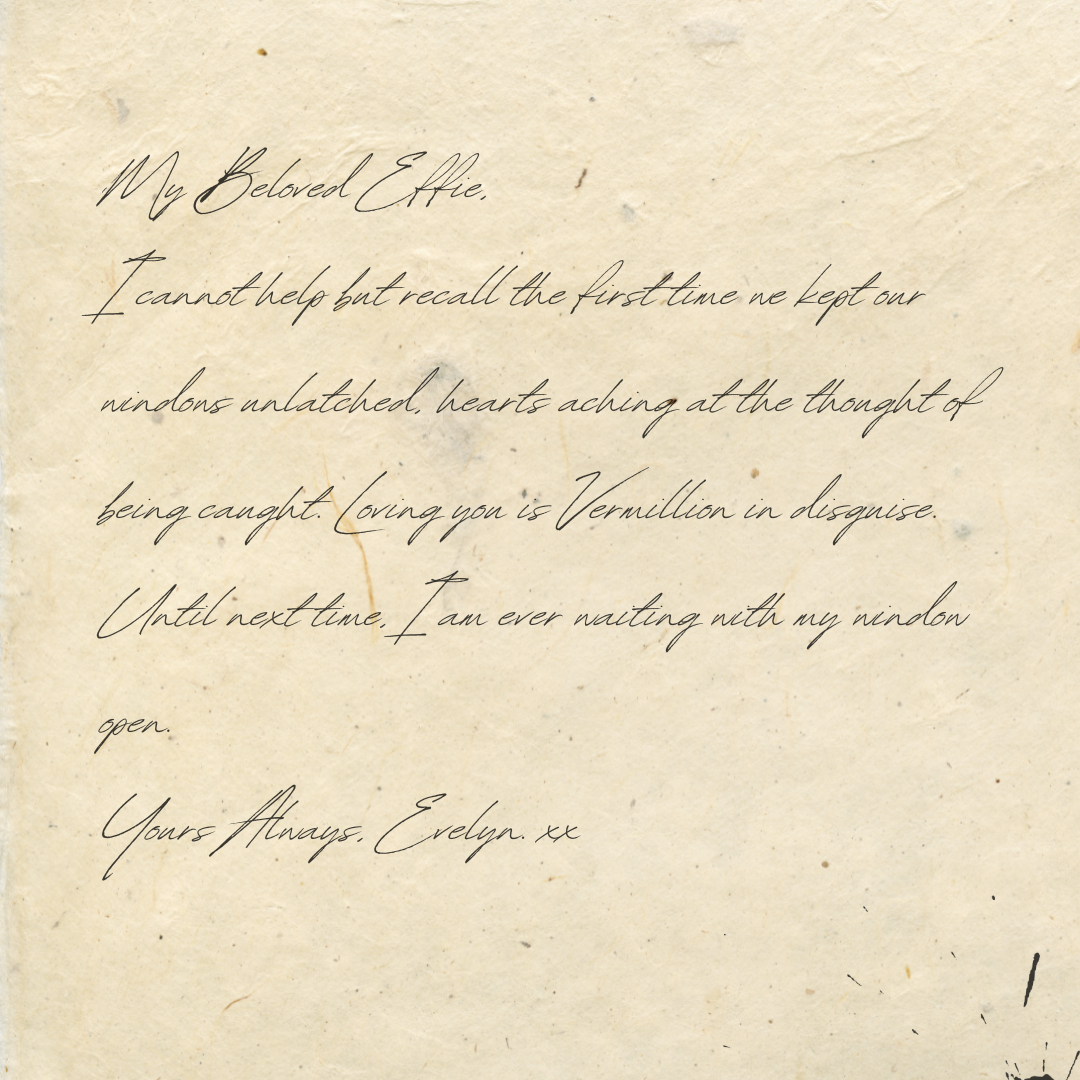 My Beloved Effie,
I cannot help but recall the first time we kept our
windows unlatched, hearts aching at the thought of
being caught. Loving you is Vermillion in disguise.
Until next time, I am ever waiting with my window
open.
Yours Always, Evelyn. xx